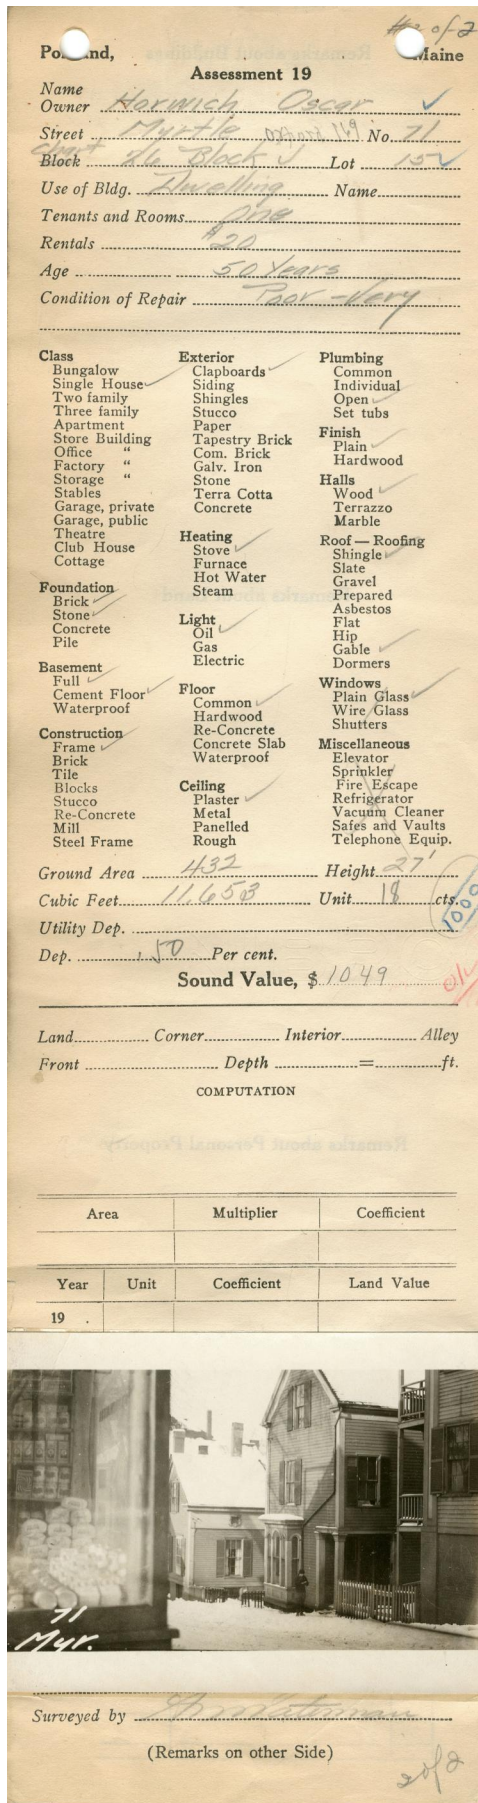 #2 of 2
Portland, Maine
Assessment 19
Name
Owner Horwich Oscar ✓
Street Myrtle No. 71
Chart
Block 26 Block J Lot 15 ✓
Use of Bldg. Dwelling Name
Tenants and Rooms One
Rentals $20
Age 50 Years
Condition of Repair Poor - Very
Class
Bungalow
Single House ✓
Two family
Three family
Apartment
Store Building
Office "
Factory "
Storage "
Stables
Garage, private
Garage, public
Theatre
Club House
Cottage
Foundation
Brick ✓
Stone ✓
Concrete
Pile
Basement
Full ✓
Cement Floor ✓
Waterproof
Construction
Frame ✓
Brick
Tile
Blocks
Stucco
Re-Concrete
Mill
Steel Frame
Exterior
Clapboards ✓
Siding
Shingles
Stucco
Paper
Tapestry Brick
Com. Brick
Galv. Iron
Stone
Terra Cotta
Concrete
Heating
Stove ✓
Furnace
Hot Water
Steam
Light
Oil ✓
Gas
Electric
Floor
Common ✓
Hardwood
Re-Concrete
Concrete Slab
Waterproof
Ceiling
Plaster ✓
Metal
Panelled
Rough
Plumbing
Common
Individual
Open ✓
Set tubs
Finish
Plain ✓
Hardwood
Halls
Wood ✓
Terrazzo
Marble
Roof — Roofing
Shingle ✓
Slate
Gravel
Prepared
Asbestos
Flat
Hip
Gable ✓
Dormers
Windows
Plain Glass ✓
Wire Glass
Shutters
Miscellaneous
Elevator
Sprinkler
Fire Escape
Refrigerator
Vacuum Cleaner
Safes and Vaults
Telephone Equip.
Ground Area 432 Height 27'
Cubic Feet 11,653 Unit 18 cts.
1000
Utility Dep.
Dep. .50 Per cent.
Sound Value, $ 1049
Land Corner Interior Alley
Front Depth = ft.
COMPUTATION
Area Multiplier Coefficient
Year Unit Coefficient Land Value
19 .
71
Myr.
Surveyed by
(Remarks on other Side)
2 of 2